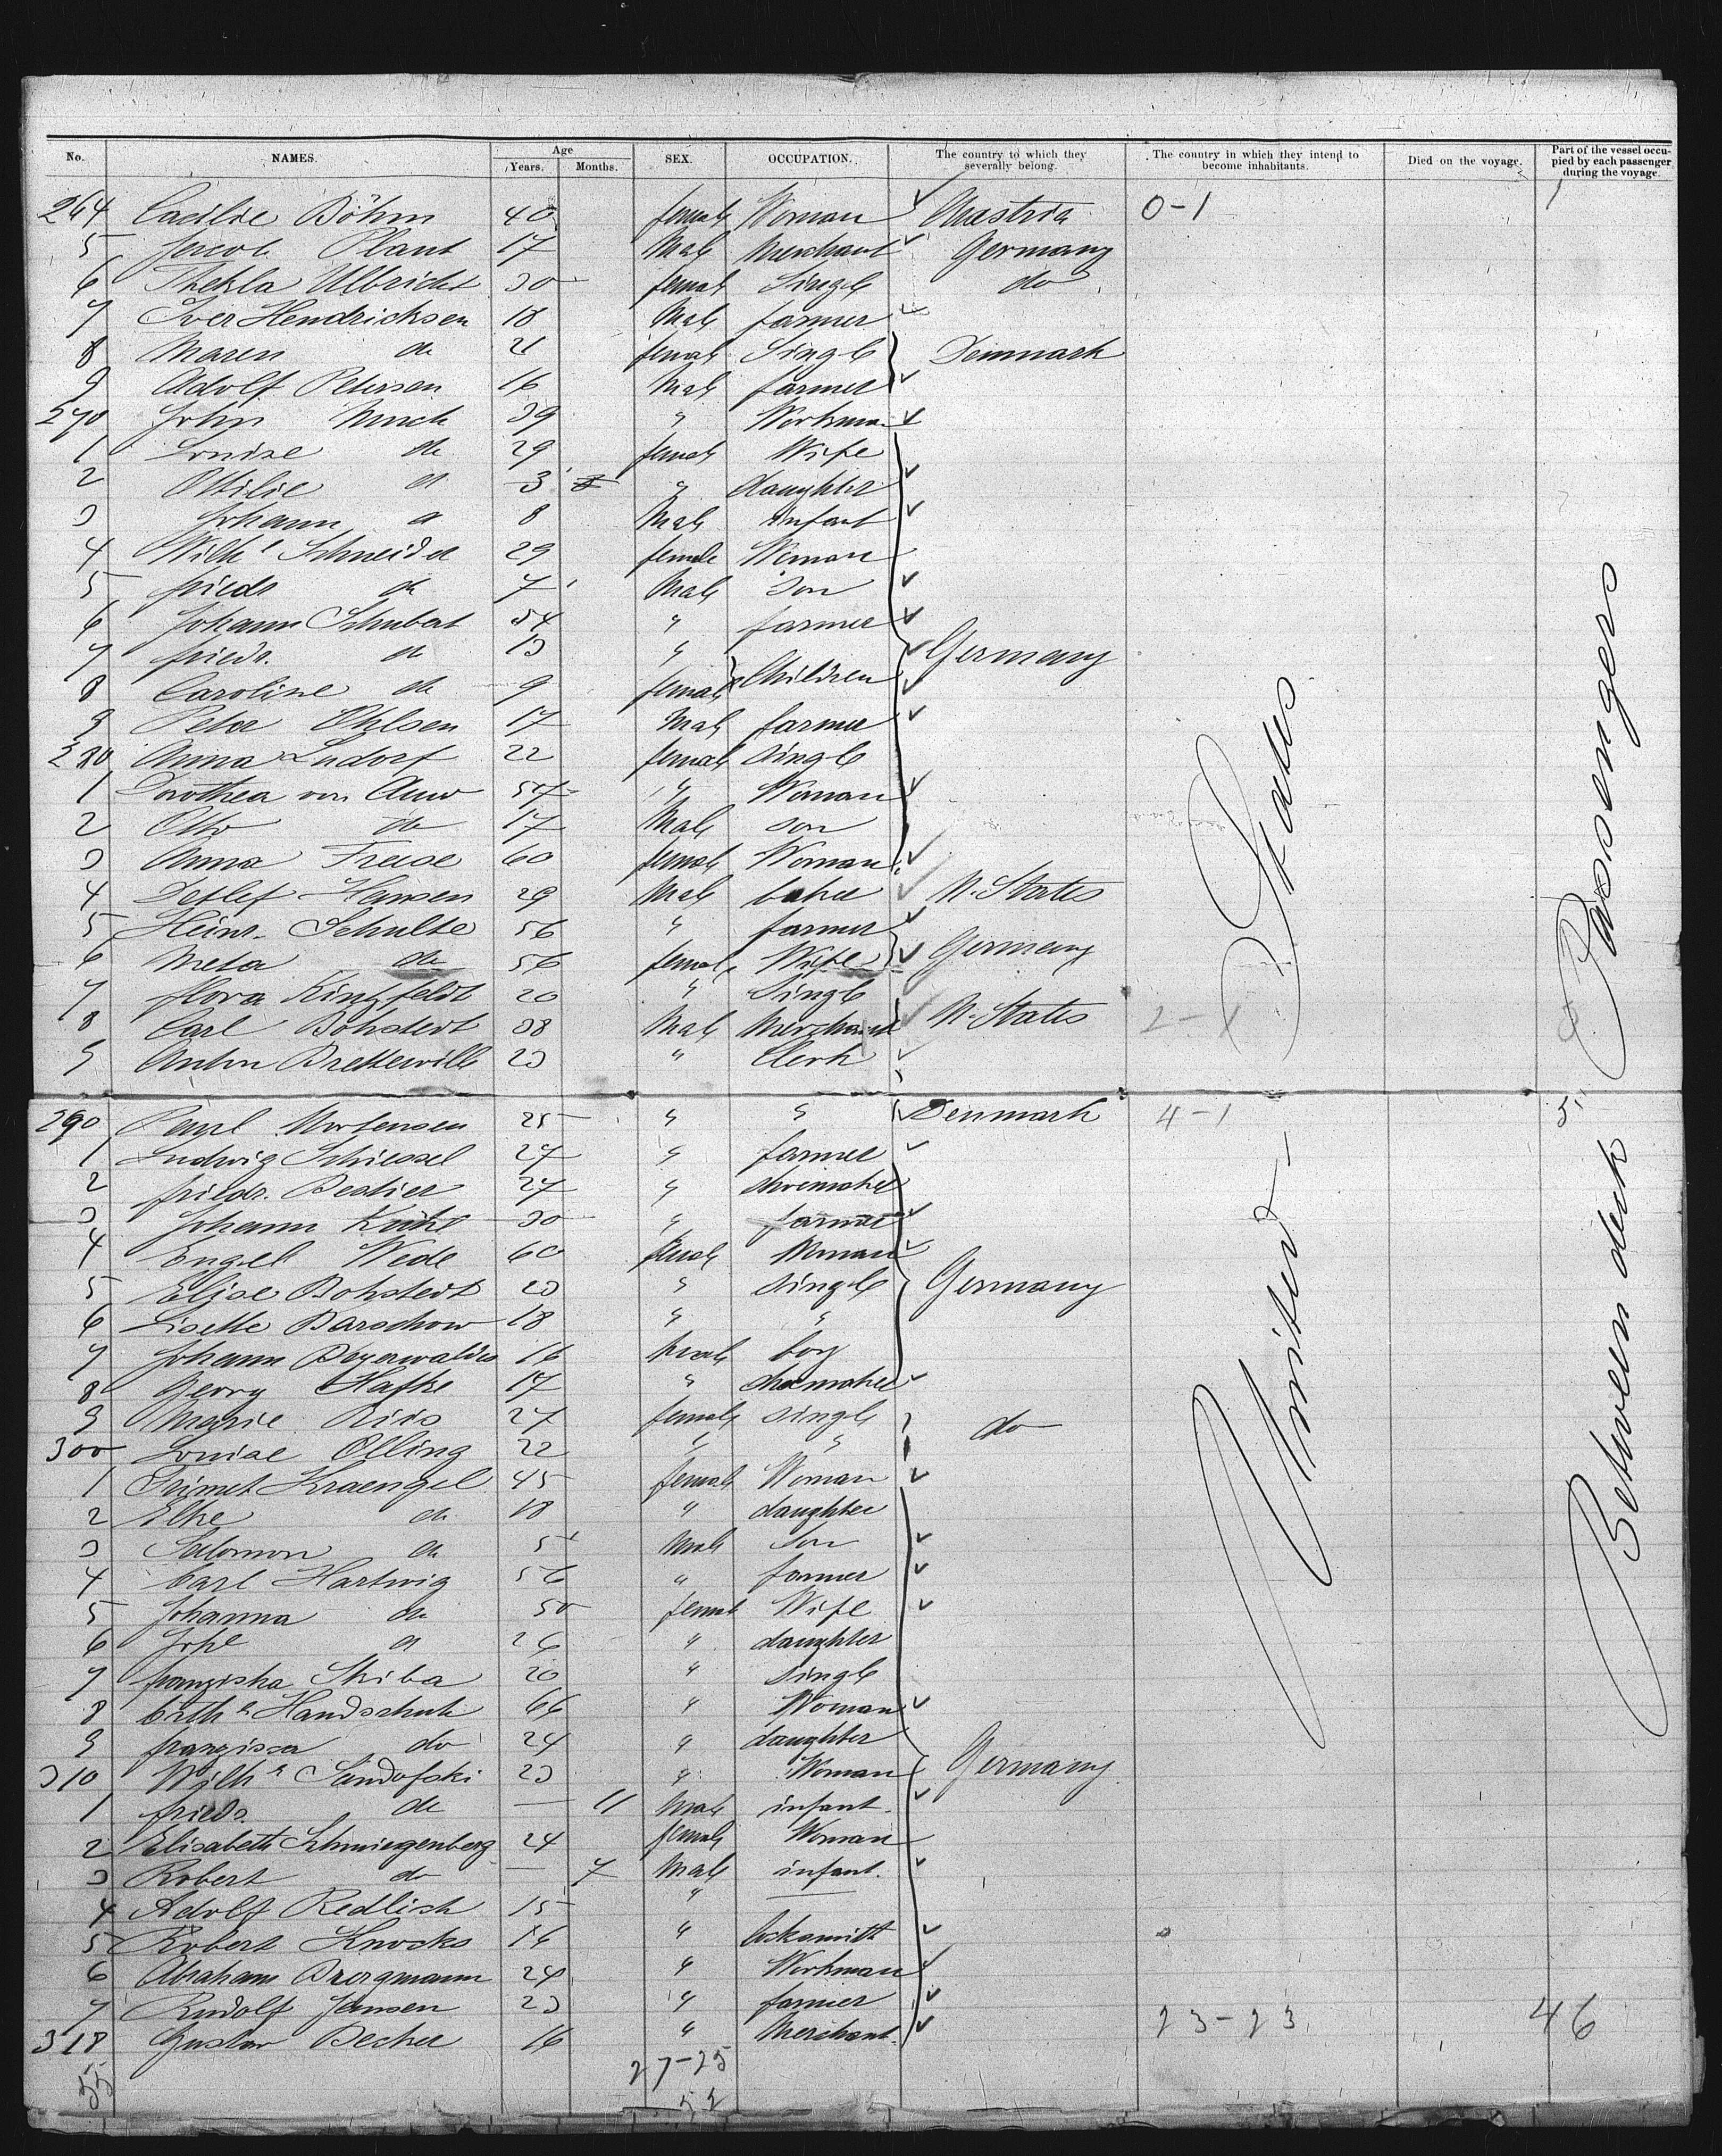 No. NAMES. Age Years. Months. SEX. OCCUPATION. The country to which they severally belong. The country in which they intend to become inhabitants. Died on the voyage. Part of the vessel occupied by each passenger during the voyage.
264 Cacilie Böhm 40 female Woman Austria 0-1 1
5 Jacob Plant 17 Male Merchant Germany
6 Thekla Ulbricht 30 female Single do
7 Iver Hendricksen 18 Male farmer
8 Maren do 21 female Single Denmark
9 Adolf Petersen 16 Male farmer
270 John 39 " Workman
1 Louise do 29 female Wife
2 Ottilie do 3 " daughter
3 Johann do 8 Male infant
4 Wilhe Schneider 29 female Woman
5 friedr do 7 Male son
6 Johann Schubert 54 " farmer
7 friedr. do 13 " Children Germany
8 Caroline do 9 female
9 Peter Ohlsen 17 Male farmer
280 Anna Ludorf 22 female single
1 Dorothea von Auw 57 " Woman
2 Otto do 17 Male son
3 Anna Freise 60 female Woman
4 Detlef Hansen 29 Male baker U. States
5 Heinr. Schulte 56 " farmer
6 Meta do 56 female Wife Germany
7 flora Kintzfeldt 20 " Single
8 Carl Bohstedt 38 Male Merchant U. States 2-1
9 Anton Bretteville 23 " Clerk
290 Paul Mortensen 25 " " Denmark 4-1 5
1 Ludwig Schiessel 27 " farmer
2 friedr. Bestier 27 " shoemaker
3 Johann 30 " farmer
4 Engel Wede 60 female Woman
5 Elise Bohstedt 23 " single Germany
6 Lisette Barschow 18 " "
7 Johann 16 Male boy
8 Georg Hafke 17 " shoemaker
9 Marie Riis 27 female single do
300 Louise Olling 22 " "
1 Kraengel 45 female Woman
2 Elke do 18 " daughter
3 Salomon do 5 Male Son
4 Carl Hartwig 56 " farmer
5 Johanna do 50 female Wife
6 Johe do 26 " daughter
7 franziska Skiba 20 " single
8 Cathe Handschuh 66 " Woman
9 franzisca do 24 " daughter
310 Wilhe Sandofski 23 " Woman Germany
1 friedr. do — 11 Male infant
2 Elisabeth Schmiegenberg 24 female Woman
3 Robert do — 7 Male infant.
4 Adolf Redlich 15 " —
5 Robert Knocks 16 " locksmith
6 Abraham Bregmann 24 " Workman
7 Rudolf Jansen 23 " farmer
318 Gustav Becker 16 " Merchant. 23-23 46
55 27-25
52
United States
Between deck Passengers